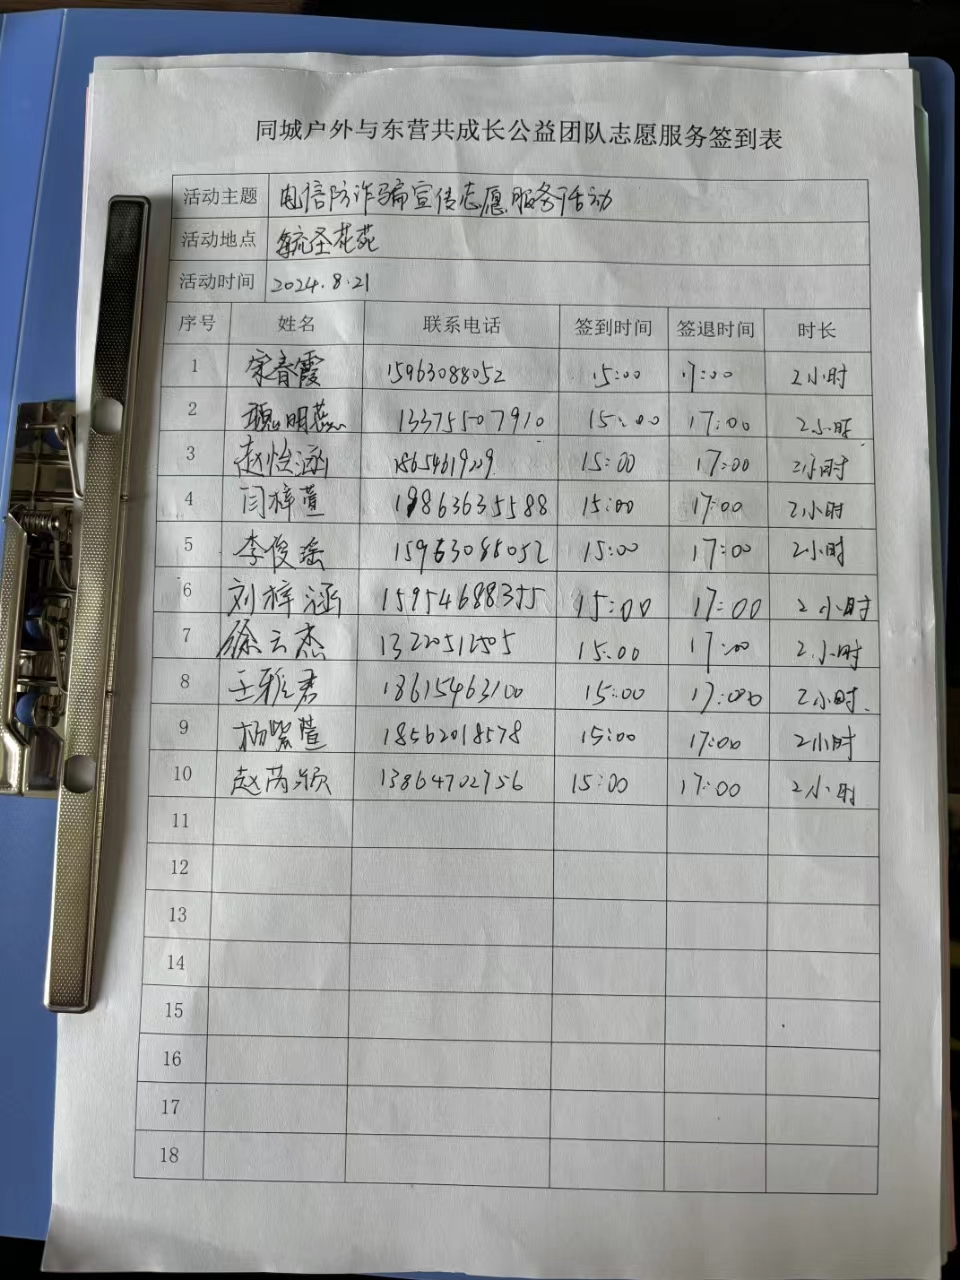 同城户外与东营共成长公益团队志愿服务签到表
活动主题 电信防诈骗宣传志愿服务活动
活动地点 毓圣花苑
活动时间 2024.8.21
序号 姓名 联系电话 签到时间 签退时间 时长
1 宋春霞 15963088052 15:00 17:00 2小时
2 魏明蕊 13375507910 15:00 17:00 2小时
3 赵怡涵 15:00 17:00 2小时
4 闫梓萱 19863635588 15:00 17:00 2小时
5 李俊瑶 15963088052 15:00 17:00 2小时
6 刘梓涵 15954688355 15:00 17:00 2小时
7 徐云杰 15:00 17:00 2小时
8 王雅君 18615463100 15:00 17:00 2小时
9 杨紫萱 18562018578 15:00 17:00 2小时
10 赵芮颍 13864702756 15:00 17:00 2小时
11
12
13
14
15
16
17
18